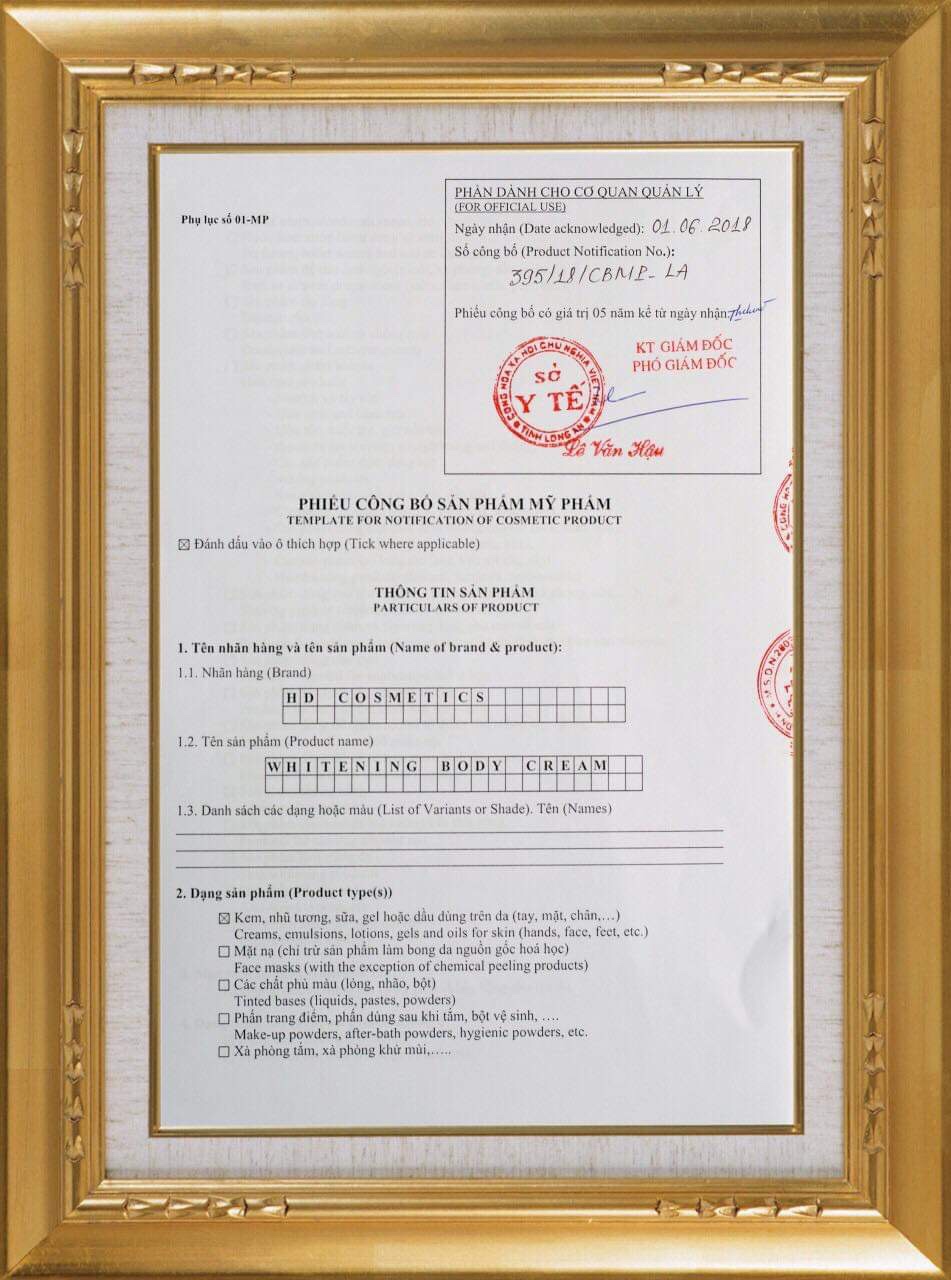 Phụ lục số 01-MP
PHẦN DÀNH CHO CƠ QUAN QUẢN LÝ
(FOR OFFICIAL USE)
Ngày nhận (Date acknowledged): 01.06.2018
Số công bố (Product Notification No.):
395/18/CBMP-LA
Phiếu công bố có giá trị 05 năm kể từ ngày nhận
KT GIÁM ĐỐC
PHÓ GIÁM ĐỐC
CỘNG HÒA XÃ HỘI CHỦ NGHĨA VIỆT NAM
SỞ
Y TẾ
TỈNH LONG AN
Lê Văn Hậu
PHIẾU CÔNG BỐ SẢN PHẨM MỸ PHẨM
TEMPLATE FOR NOTIFICATION OF COSMETIC PRODUCT
☒ Đánh dấu vào ô thích hợp (Tick where applicable)
THÔNG TIN SẢN PHẨM
PARTICULARS OF PRODUCT
1. Tên nhãn hàng và tên sản phẩm (Name of brand & product):
1.1. Nhãn hàng (Brand)
HD COSMETICS
1.2. Tên sản phẩm (Product name)
WHITENING BODY CREAM
1.3. Danh sách các dạng hoặc màu (List of Variants or Shade). Tên (Names)
2. Dạng sản phẩm (Product type(s))
☒ Kem, nhũ tương, sữa, gel hoặc dầu dùng trên da (tay, mặt, chân,…)
Creams, emulsions, lotions, gels and oils for skin (hands, face, feet, etc.)
☐ Mặt nạ (chỉ trừ sản phẩm làm bong da nguồn gốc hoá học)
Face masks (with the exception of chemical peeling products)
☐ Các chất phủ màu (lỏng, nhão, bột)
Tinted bases (liquids, pastes, powders)
☐ Phấn trang điểm, phấn dùng sau khi tắm, bột vệ sinh, ….
Make-up powders, after-bath powders, hygienic powders, etc.
☐ Xà phòng tắm, xà phòng khử mùi,…..